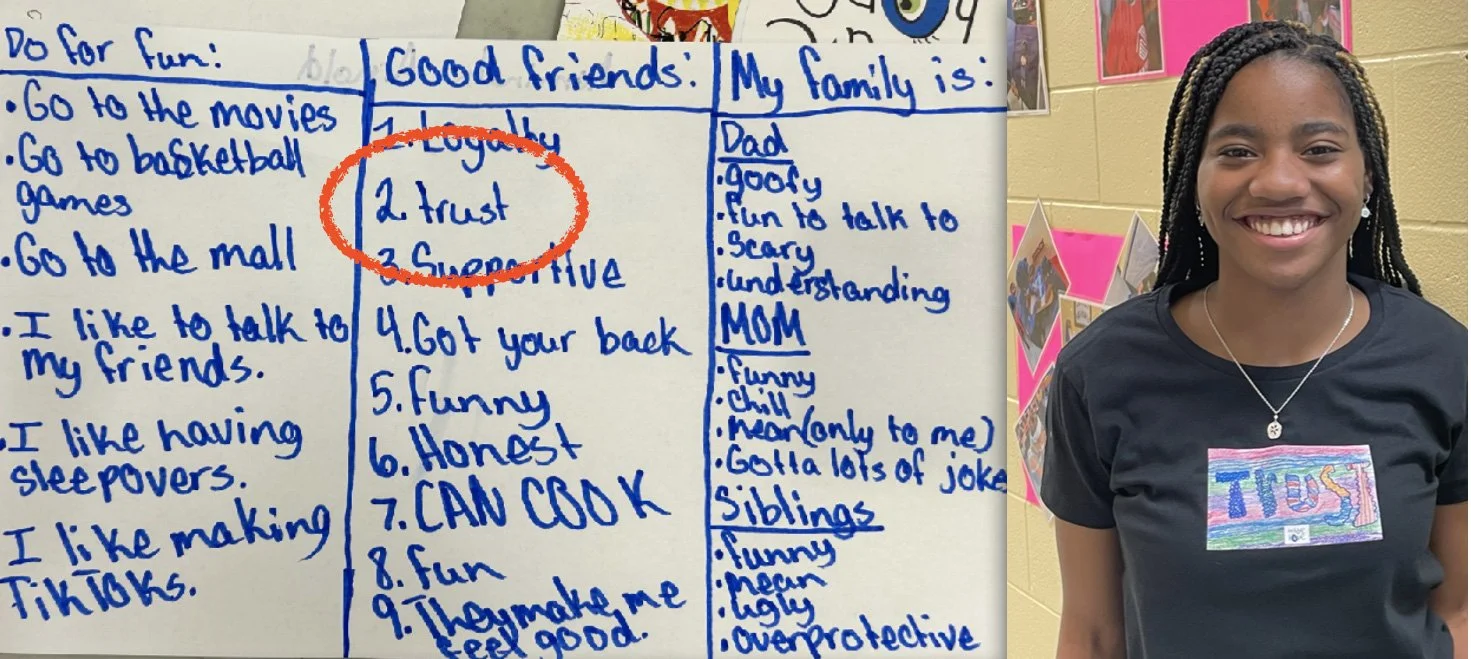 Do for fun:
• Go to the movies
• Go to basketball
games
• Go to the mall
• I like to talk to
my friends.
• I like having
sleepovers.
I like making
TikToks.
Good friends:
1. Loyalty
2. trust
3. Supportive
4. Got your back
5. funny
6. Honest
7. CAN COOK
8. fun
9. They make me
feel good.
My family is:
Dad
• goofy
• fun to talk to
• Scary
• understanding
MOM
• funny
• chill
• mean(only to me)
• Gotta lots of joke
Siblings
• funny
• mean
• ugly
• overprotective
TRUST